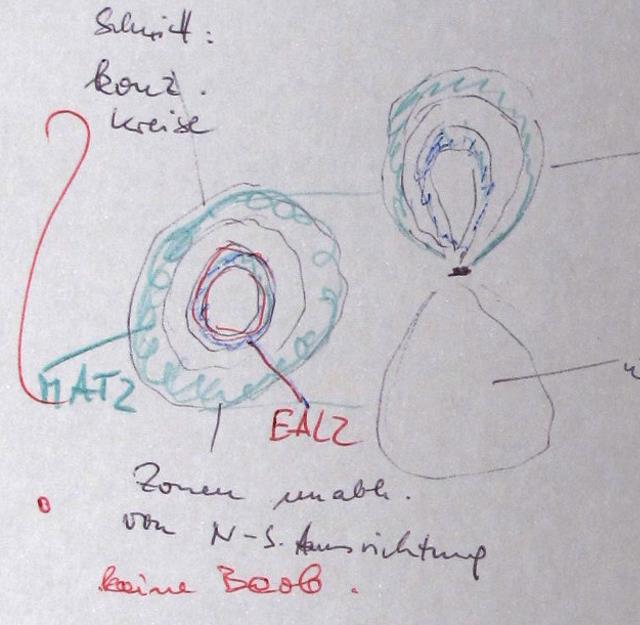 Schnitt:
konz.
Kreise
MATZ
EALZ
Zonen unabh.
von N-S. Ausrichtung
keine Beob.